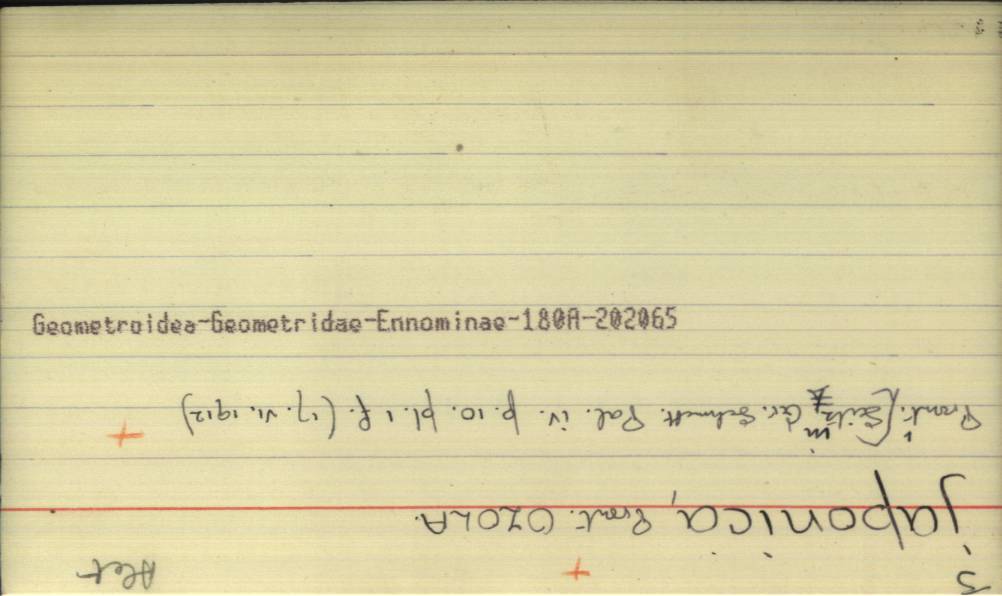 japonica, Prout. OZOLA.
Prout. (Seitz, in Gr. Schmett. Pal. iv. p. 10. pl. 1 f. (17. vi. 1912)
Geometroidea-Geometridae-Ennominae-180A-202065